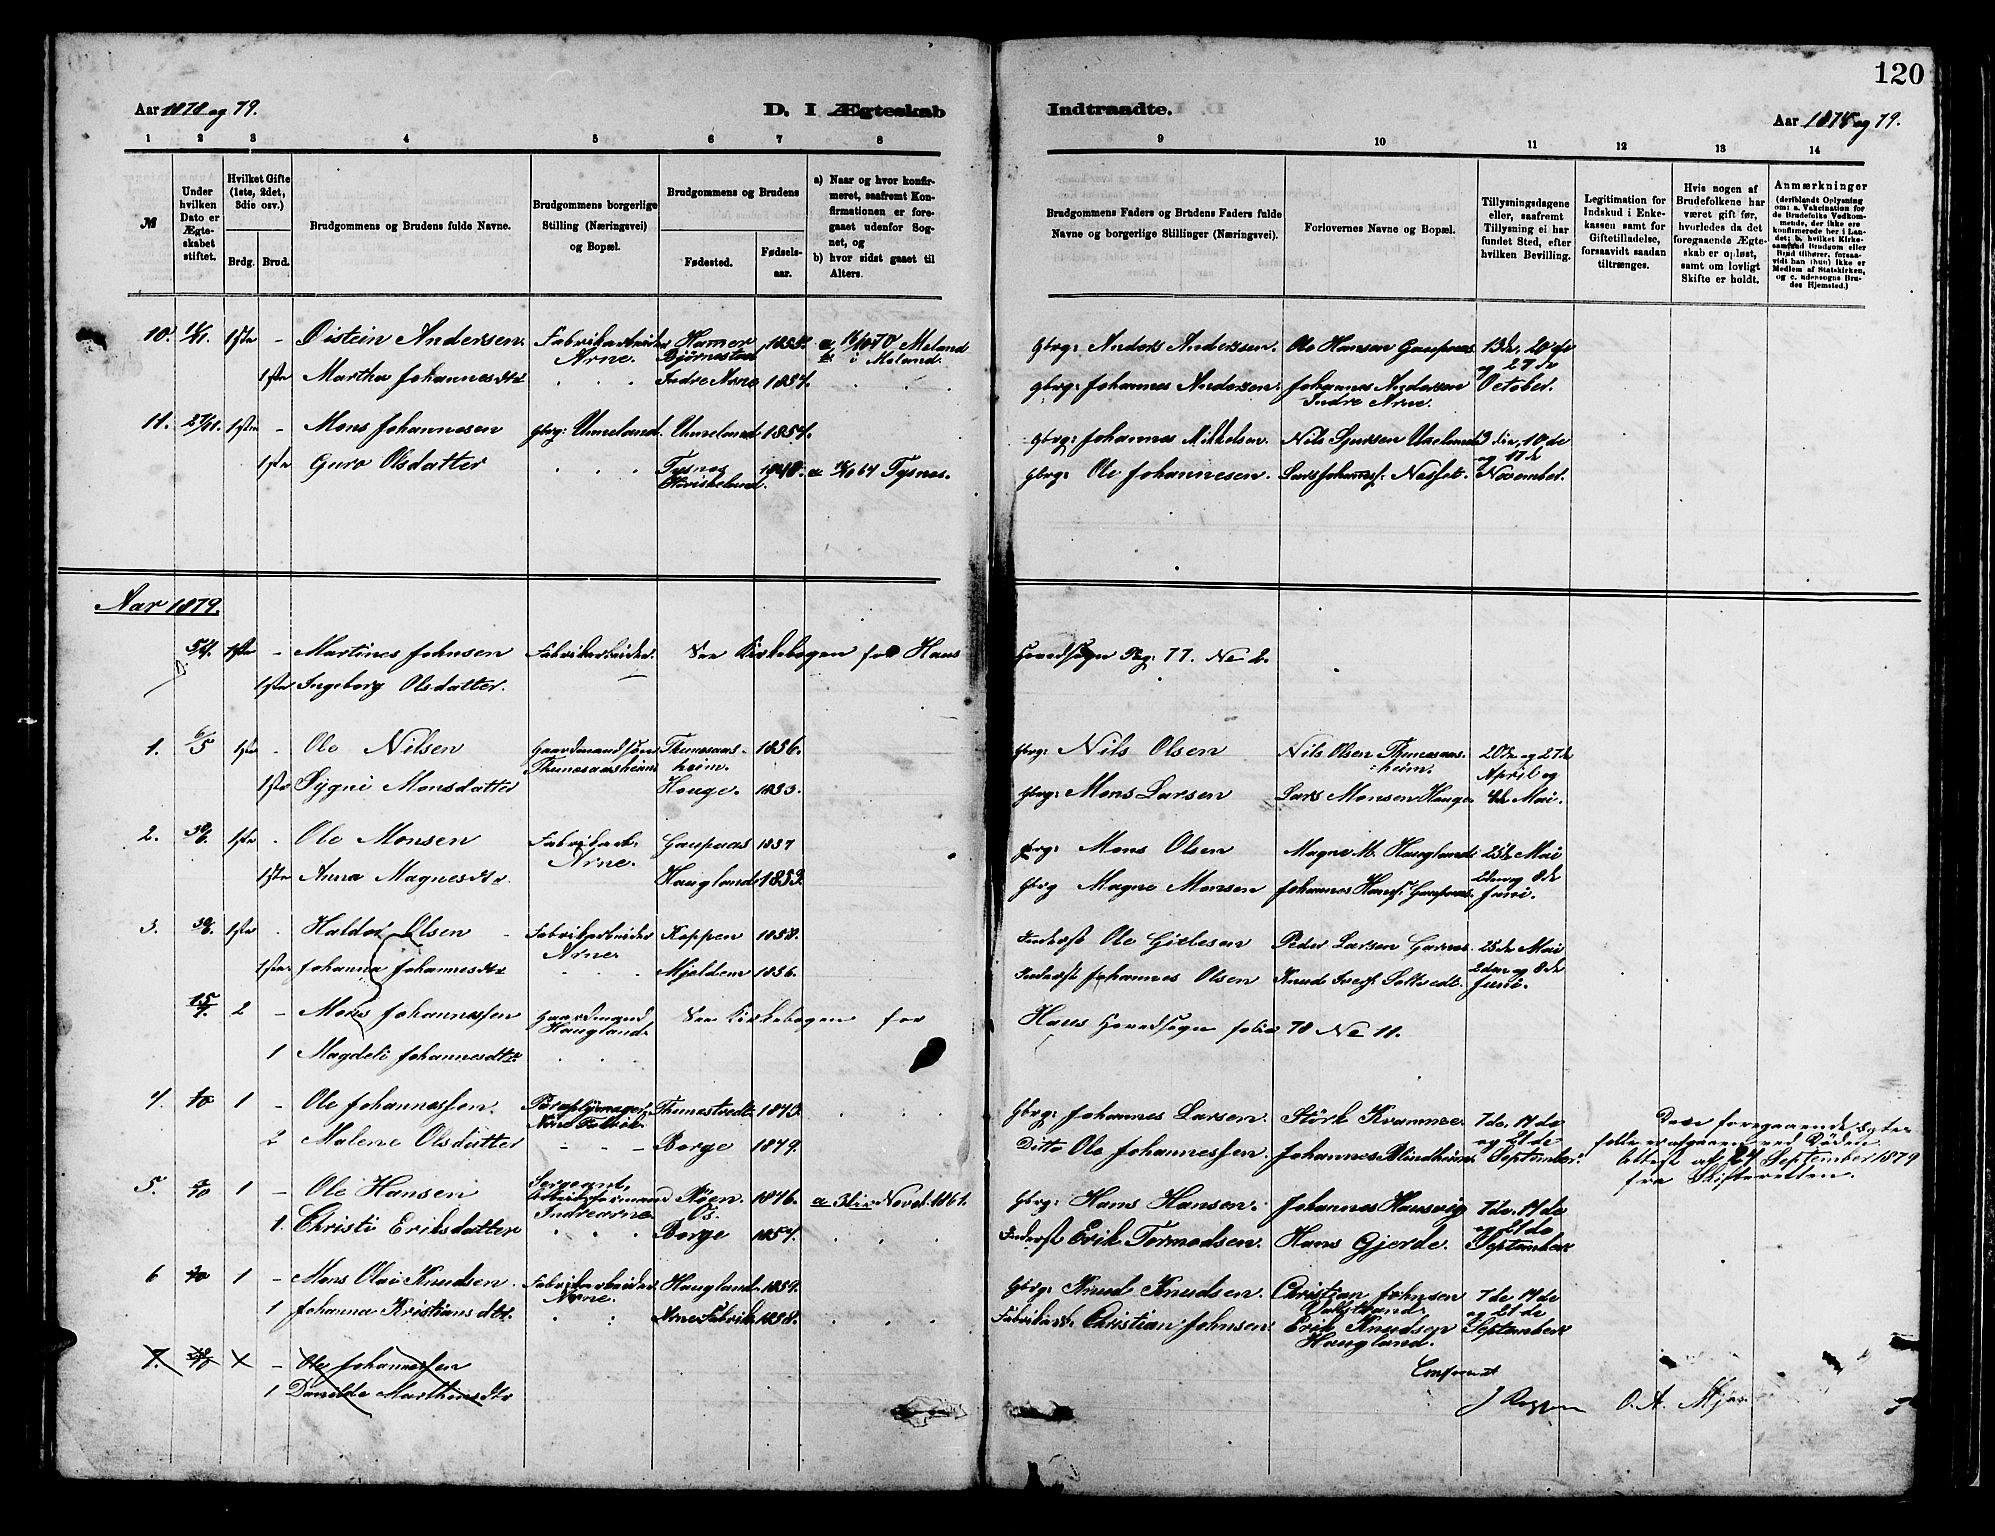 120
Aar 1878 og 79.
D. I Ægteskab
Indtraadte.
Aar 1878 og 79.
1 2 3 4 5 6 7 8
9 10 11 12 13 14
№
Under hvilken Dato er Ægteskabet stiftet.
Hvilket Gifte (1ste, 2det, 3die osv.)
Brdg. Brud.
Brudgommens og Brudens fulde Navne.
Brudgommens borgerlige Stilling (Næringsvei) og Bopæl.
Brudgommens og Brudens
Fødested. Fødselsaar.
a) Naar og hvor konfirmeret, saafremt Konfirmationen er foregaaet udenfor Sognet, og
b) hvor sidst gaaet til Alters.
Brudgommens Faders og Brudens Faders fulde Navne og borgerlige Stillinger (Næringsvei).
Forlovernes Navne og Bopæl.
Tillysningsdagene eller, saafremt Tillysning ei har fundet Sted, efter hvilken Bevilling.
Legitimation for Indskud i Enkekassen samt for Giftetilladelse, forsaavidt saadan tiltrænges.
Hvis nogen af Brudefolkene har været gift før, hvorledes da det foregaaende Ægteskab er opløst, samt om lovligt Skifte er holdt.
Anmærkninger
(deriblandt Oplysning om: a. Vakcination for de Brudefolks Vedkommende, der ikke ere konfirmerede her i Landet; b. hvilket Kirkesamfund Brudgom eller Brud tilhører, forsaavidt han (hun) ikke er Medlem af Statskirken, og c. udensogns Brudes Hjemsted.)
10. 1ste - Øistein Andersen. Fabrikarbeider Arne. Hamer Bjørnestad 1855. a, Meland b, i Meland. Gbrg: Anders Andersen. Ole Hansen Gaupaas 13de, 20de og 27de October.
1ste Martha Johannesdtr Indre Arne 1857. Gbrg: Johannes Andersen. Johannes Andersen Indre Arne.
11. 27/11. 1ste - Mons Johannesen Gbrg: Unneland. Unneland 1857. Gbrg: Johannes Mikkelsen. Nils Sjursen Unneland 3die, 10de og 17de November.
1ste Guro Olsdatter Tysnes 1848. a 64 Tysnes. Gbrg: Ole Johannesen. Lars Johannes. Nesset.
Aar 1879.
1ste - Martines Johnsen Fabrikarbeider. See Kirkebogen for Haus Hovedsogn Pag: 77. No 2.
1ste Ingeborg Olsdatter.
1. 6/5 1ste - Ole Nilsen Gaardmandssøn Thunesaasheim Thunesaasheim. 1856. Gbrg: Nils Olsen Nils Olsen Thunesaasheim. 20de og 27de April og 4de Mai.
1ste Sygni Monsdatter Houge. 1853. Gbrg: Mons Larsen Lars Monsen Hauge
2. 30/6 1ste - Ole Monsen Fabrikarb: Arne. Gaupaas 1857 Gbrg: Mons Olsen Magne M. Haugland 25de Mai 2den og 8de Juni.
1ste Anna Magnesdtr. Haugland 1853. Gbrg Magne Monsen Johannes Hans. Gaupaas.
3. 30/6. 1ste - Haldor Olsen Fabrikarbeider Arne Koppen 1858. Inderst Ole Gielesen Peder Larsen Garnes. 25de Mai 2den og 8de Juni.
1ste Johanna Johannesdtr Mjeldem 1856. Inderst Johannes Olsen Knud Iver. Toltvedt.
15/7. 2 - Mons Johannessen Gaardmand Haugland. See Kirkebogen for Haus Hovedsogn folio 78 No 11.
1 Magdeli Johannesdtr.
4. 1 - Ole Johannessen. Arne Fabrik. Thunestvedt 1873. Gbrg: Johannes Larsen. Størk Kramner. 7de, 14de og 21de September.
2 Malene Olsdatter Borge 1849. Ditto Ole Johannessen. Johannes Blindheim. Dens foregaaende Ægtefelle er afgaaen ved Døden. Attest af 24 September 1879 fra Skifteretten.
5. 1 - Ole Hansen Sergeant, Arbeidsformand Indrearne Nöen, Os. 1846. a 3die Novd. 1861. Gbrg: Hans Hansen. Johannes Hausvig 7de, 14de og 21de September
1. Christi Eriksdatter Borge 1857. Inderst Erik Tormodsen. Hans Gjerde.
6 1 - Mons Olai Knudsen. Fabrikarbeider Arne. Haugland 1859. Gbrg: Knud Knudsen. Christian Johnsen Valestrand. 7de, 14de og 21de September
1 Johanna Kristiansdtr. Arne Fabrik 1858. Fabrikarb. Christian Johnsen. Erik Knudsen Haugland.
7. - Ole Johannessen
1 Danelde Marthinusdtr
Conferert
O. A. Mjør